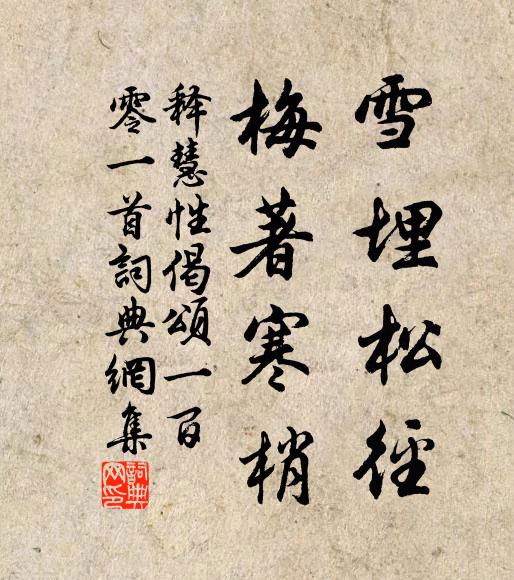 雪埋松徑
梅著寒梢
释慧性偈頌一百
零一首詞典網集
詞典网印